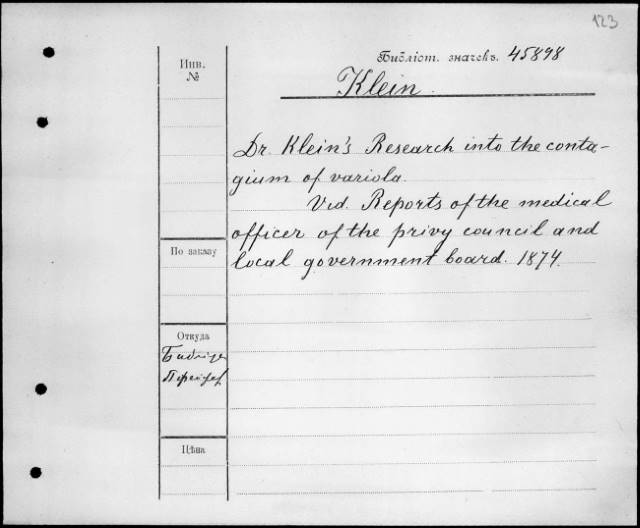 123
Библіот. значекъ. 45898
Инв.
№
Klein
Dr. Klein's Research into the conta-
gium of variola.
Vid. Reports of the medical
officer of the privy council and
local government board. 1874.
По заказу
Откуда
Цѣна